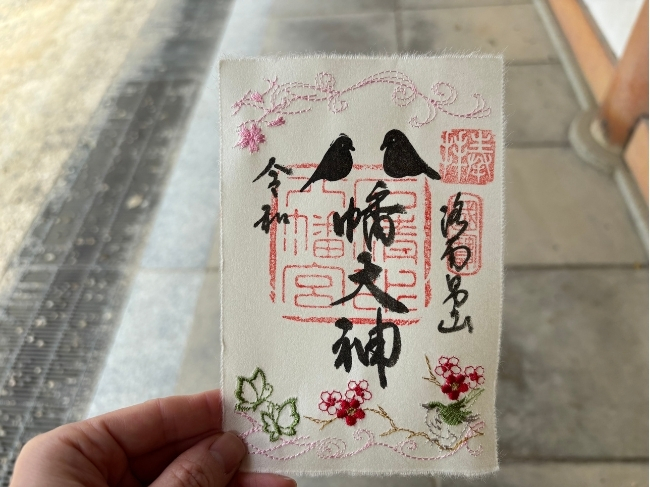 奉拝
國寶
洛南男山
八幡大神
石清水
八幡宮
令和